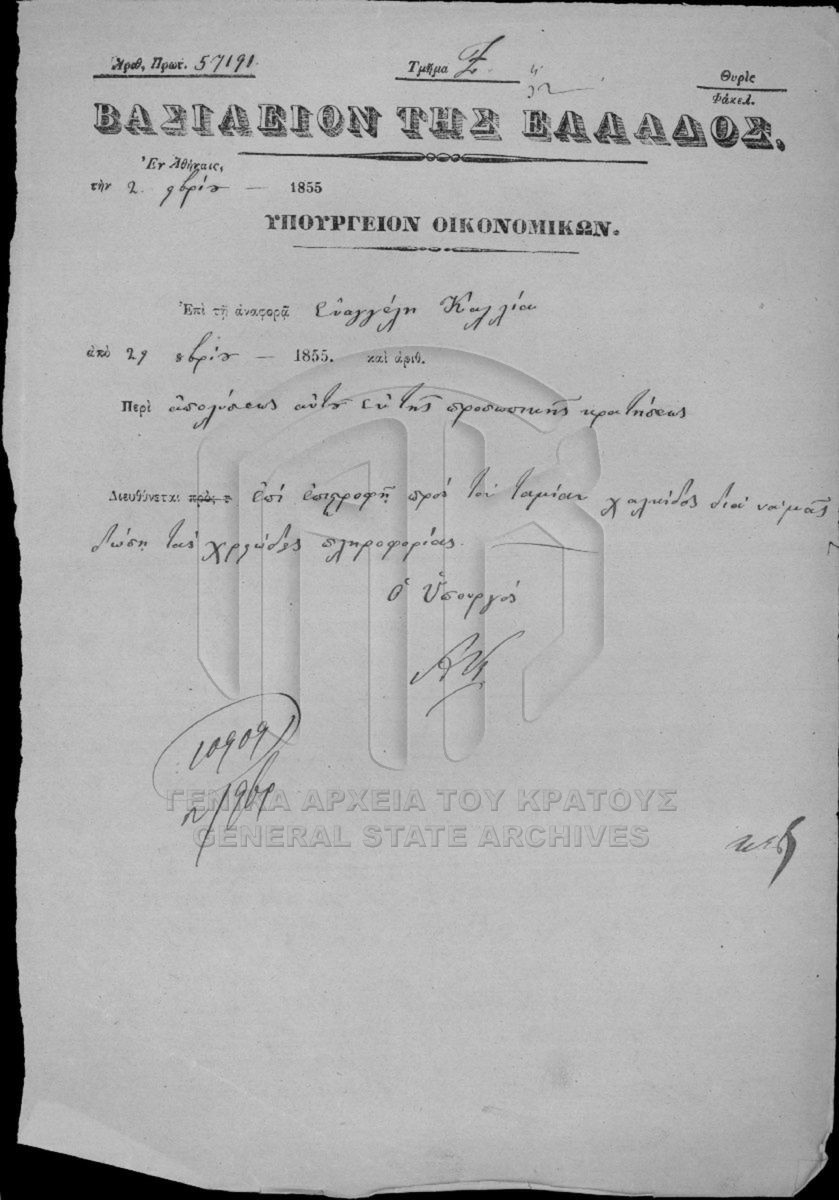 Ἀριθ. Πρωτ. 57191.
Τμῆμα Ζ.
Θυρὶς
Φάκελ.
ΒΑΣΙΛΕΙΟΝ ΤΗΣ ΕΛΛΑΔΟΣ.
Ἐν Ἀθήναις,
τὴν 2 9βρίου — 1855
ΥΠΟΥΡΓΕΙΟΝ ΟΙΚΟΝΟΜΙΚΩΝ.
Ἐπὶ τῇ ἀναφορᾷ Εὐαγγέλη Καλλία
ἀπὸ 29 8βρίου — 1855. καὶ ἀριθ.
Περὶ ἀπολύσεως αὐτοῦ ἐκ τῆς προσωπικῆς κρατήσεως
Διευθύνεται πρὸς τ ἐπὶ ἐπιστροφῇ πρὸς τὸν ταμίαν Χαλκίδος διὰ νὰ μᾶς
δώσῃ τὰς χρειώδεις πληροφορίας.
Ὁ Ὑπουργός
10909
2/9βρ
ΓΕΝΙΚΑ ΑΡΧΕΙΑ ΤΟΥ ΚΡΑΤΟΥΣ
GENERAL STATE ARCHIVES